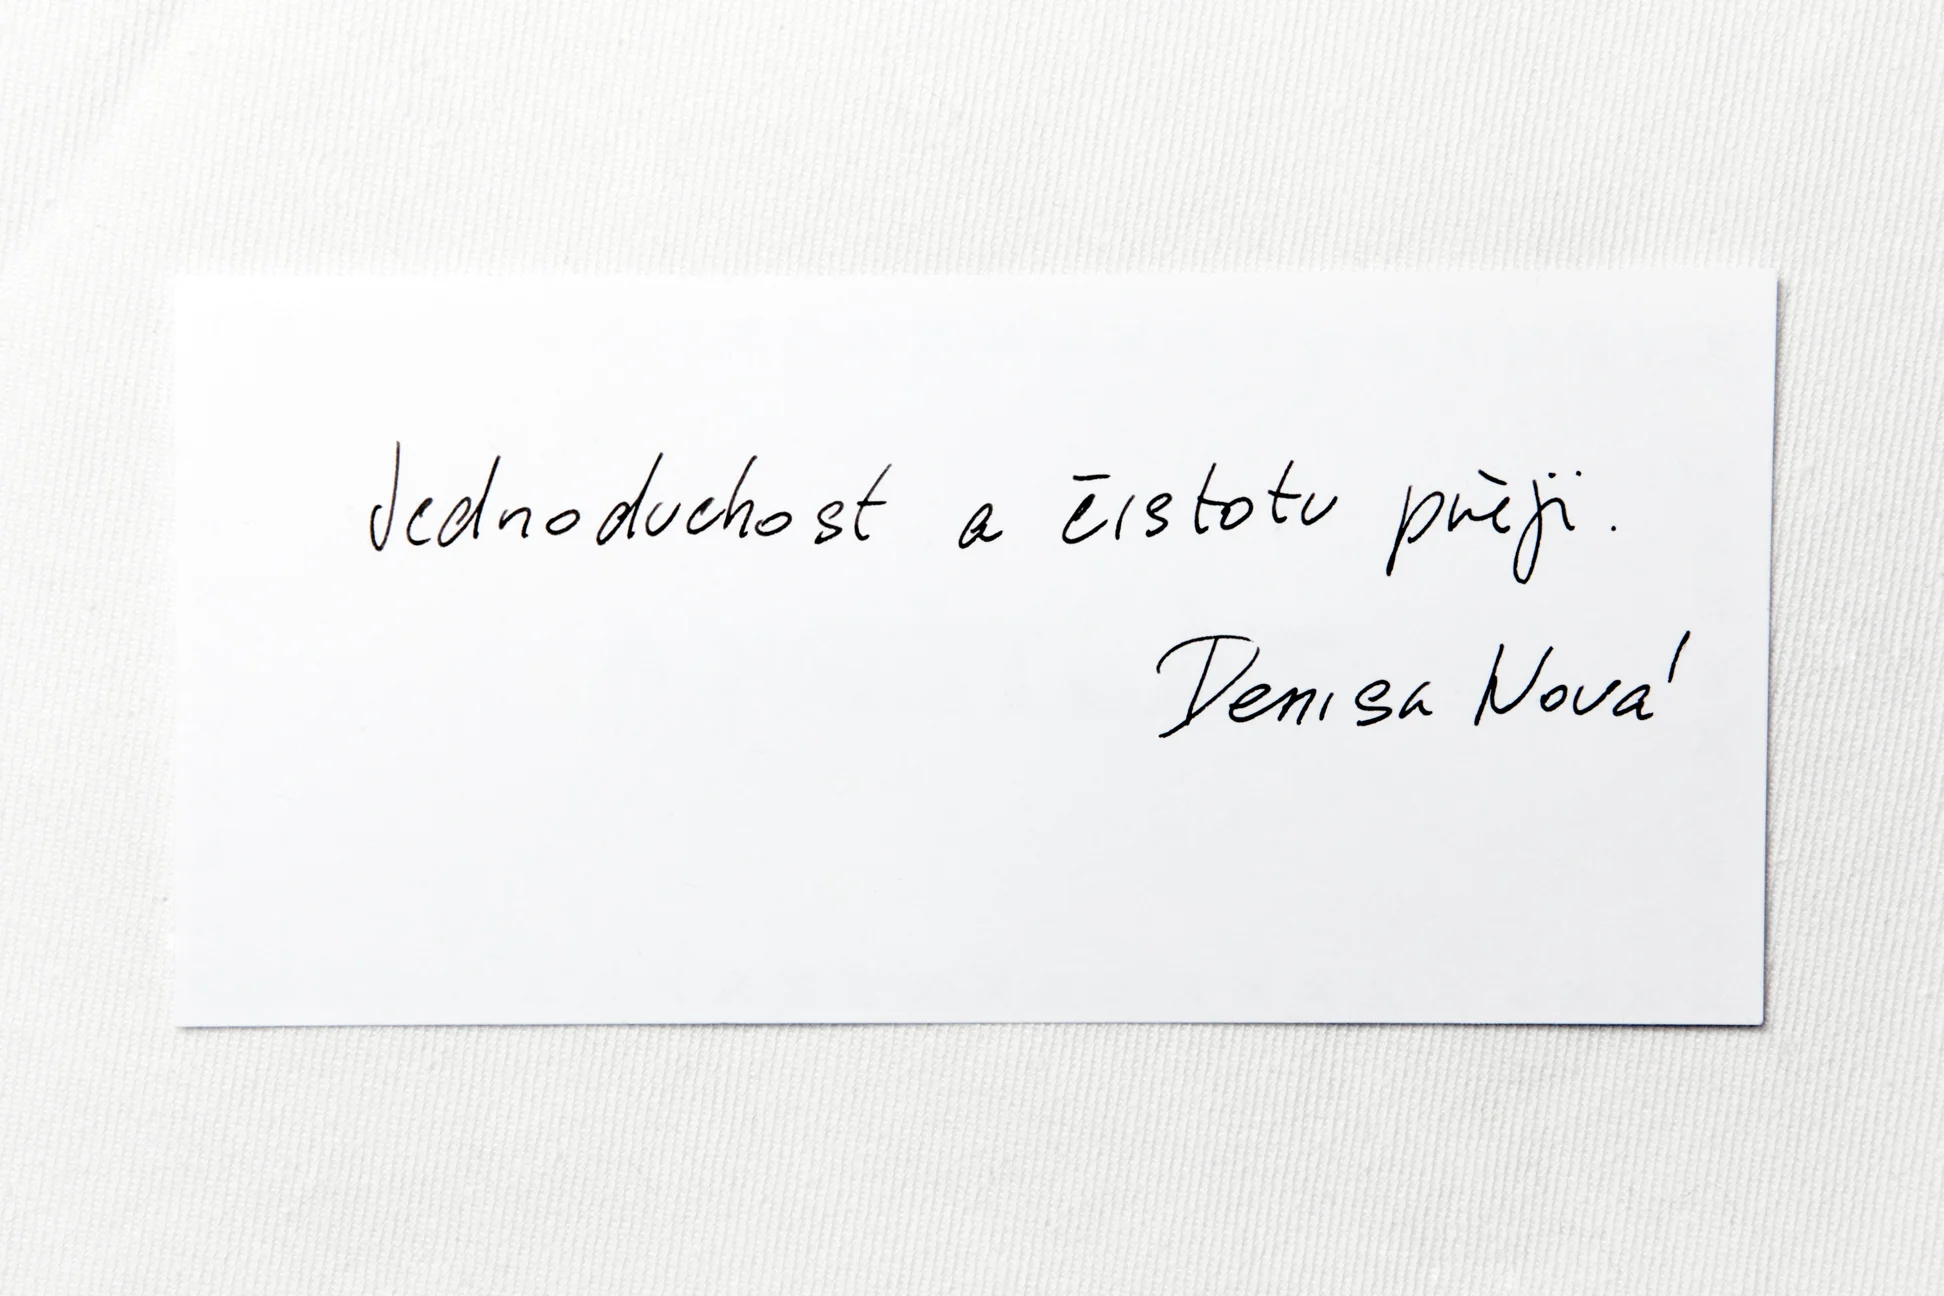 Jednoduchost a čistotu přeji.
Denisa Nová